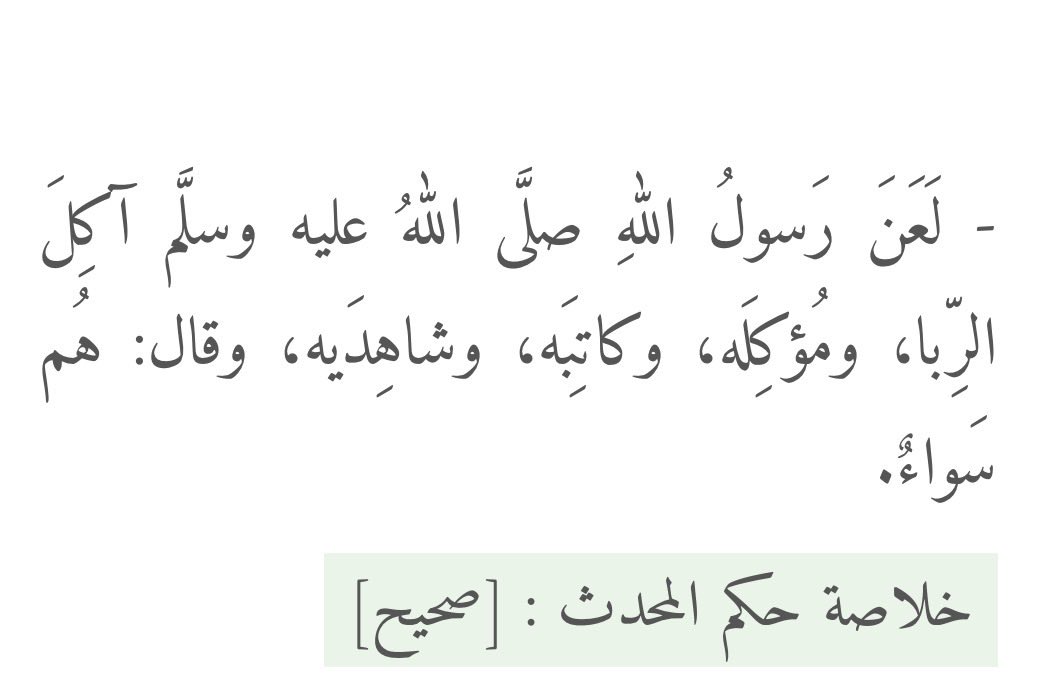 - لَعَنَ رَسولُ اللهِ صلَّى اللهُ عليه وسلَّم آكِلَ
الرِّبا، ومُؤكِلَه، وكاتِبَه، وشاهِدَيه، وقال: هُم
سَواءٌ.
خلاصة حكم المحدث : [صحيح]